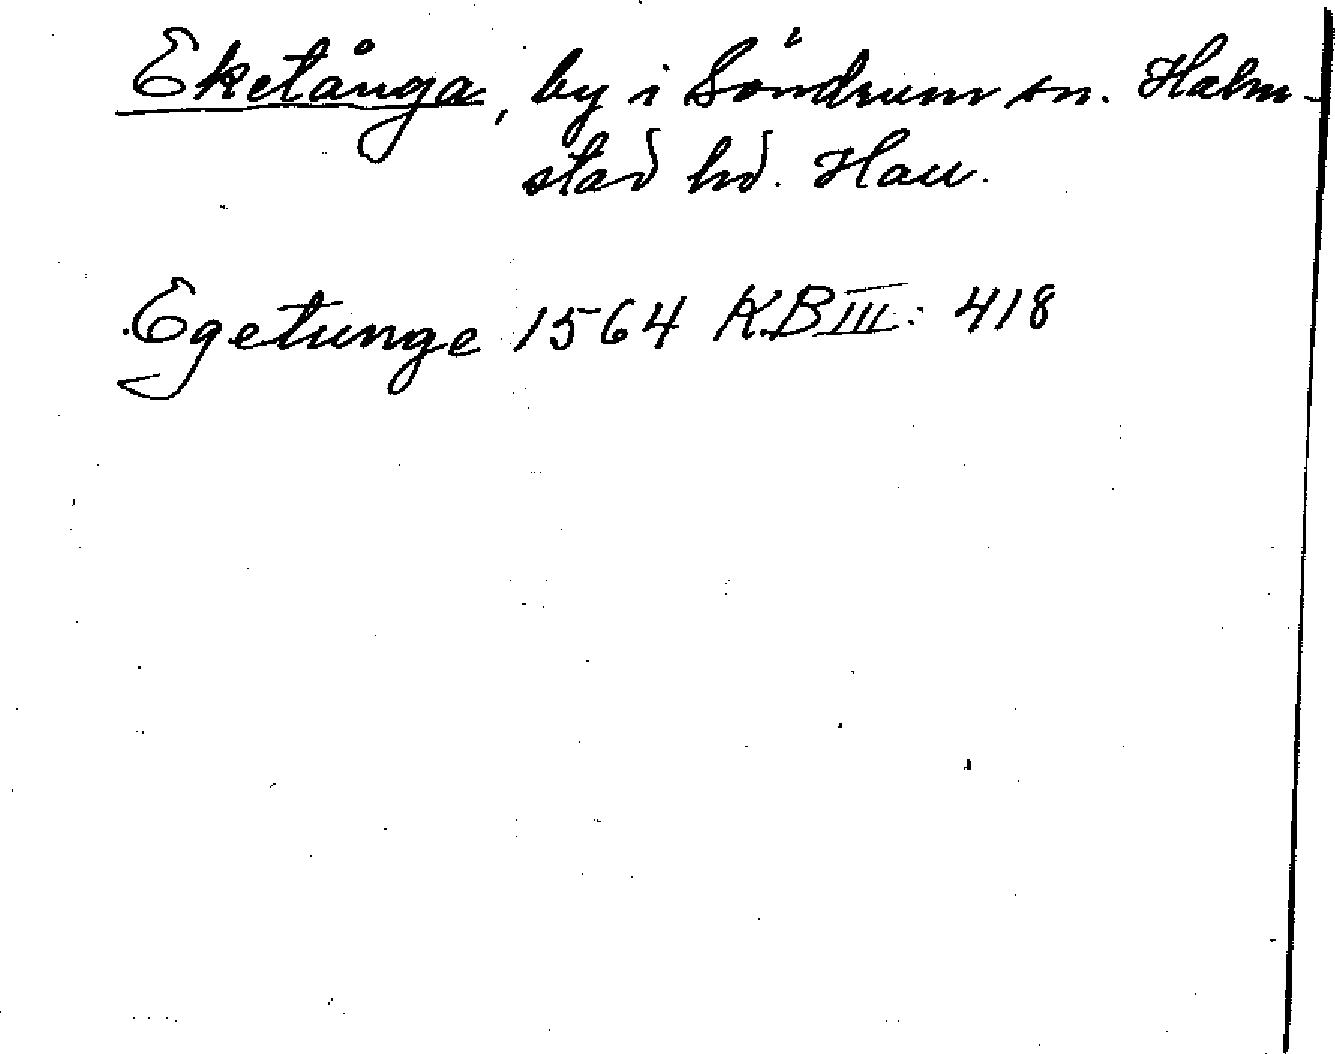 Eketånga, by i Söndrum sn. Halm-
stad hd. Hall.
Egetunge 1564 KB III: 418